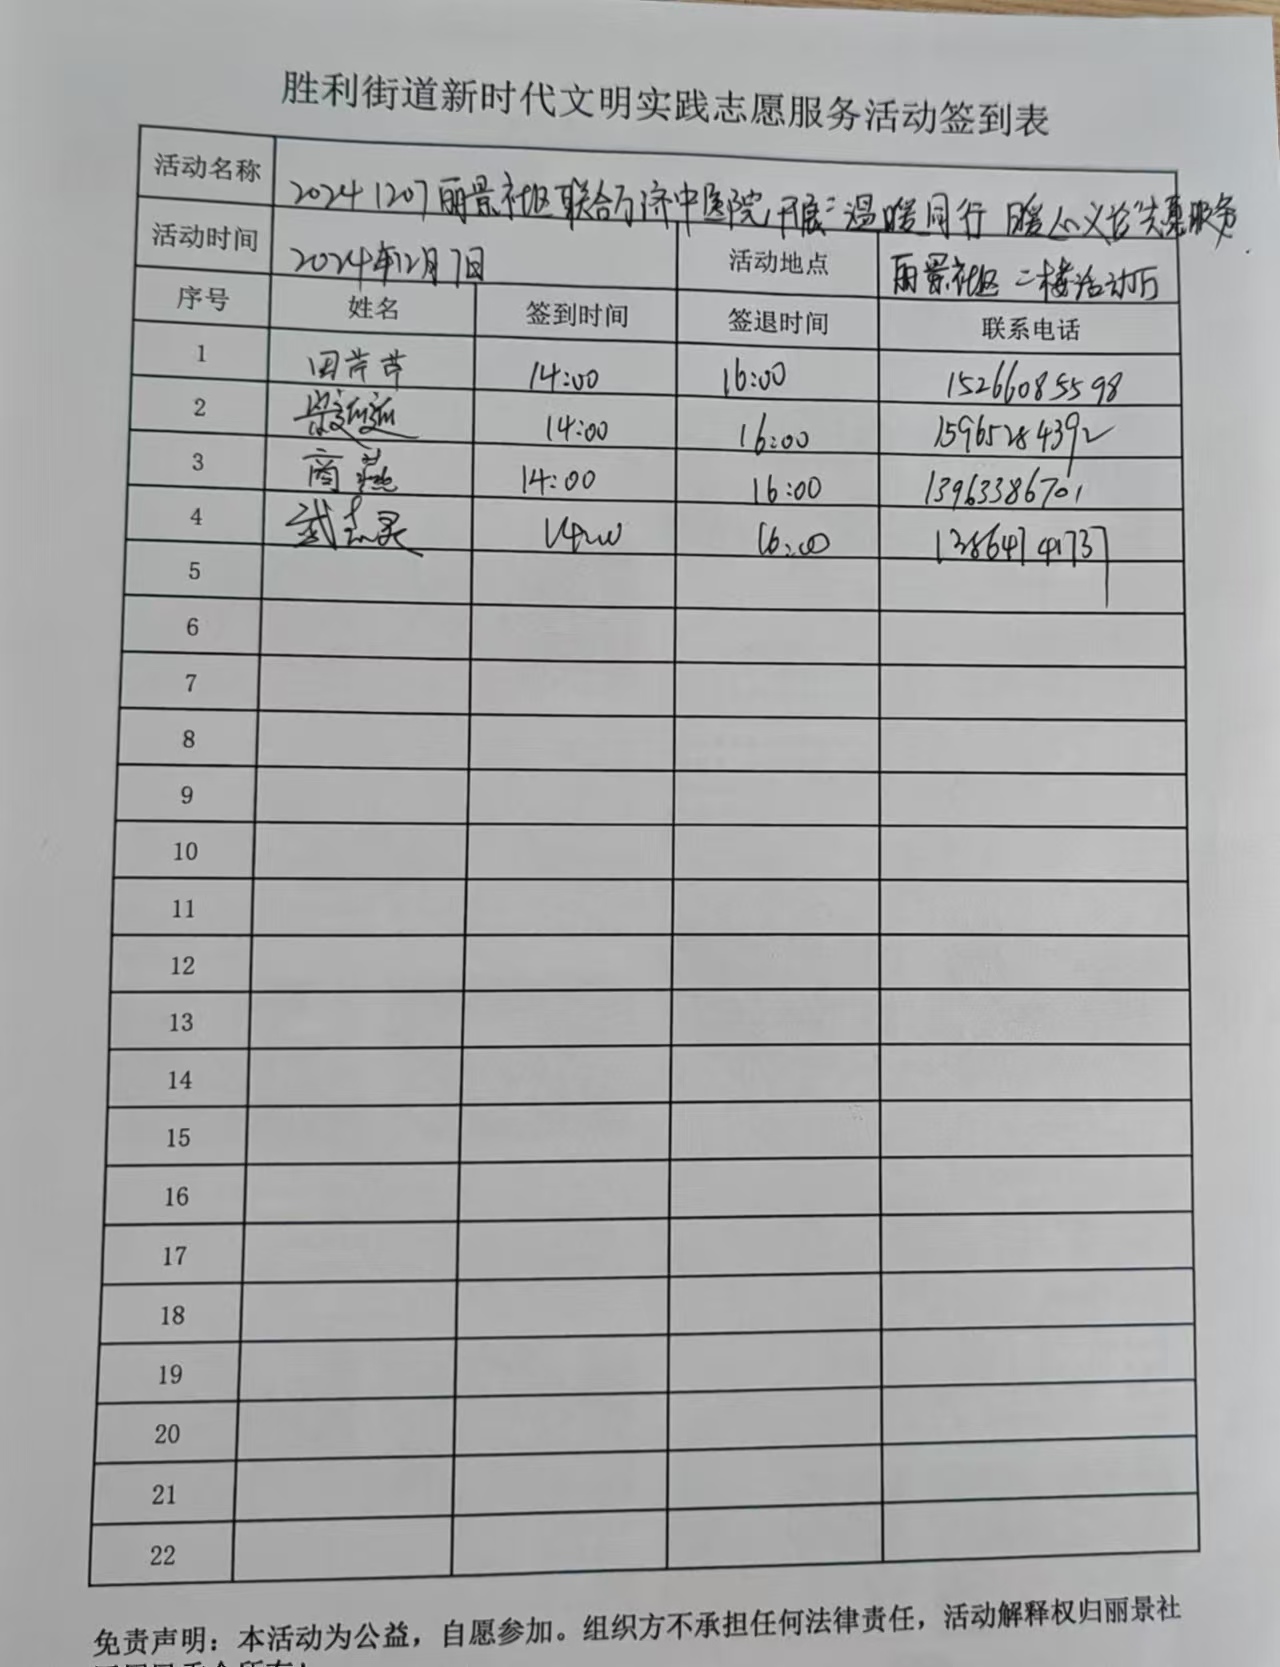 胜利街道新时代文明实践志愿服务活动签到表
活动名称 20241207丽景社区联合万济中医院开展"温暖同行 暖心义诊"志愿服务
活动时间 2024年12月7日 活动地点 丽景社区二楼活动厅
序号 姓名 签到时间 签退时间 联系电话
1 田芹芹 14:00 16:00 15266085598
2 14:00 16:00 15965284392
3 商燕 14:00 16:00 13963386701
4 武志灵 14:00 16:00 13864741737
5
6
7
8
9
10
11
12
13
14
15
16
17
18
19
20
21
22
免责声明：本活动为公益，自愿参加。组织方不承担任何法律责任，活动解释权归丽景社